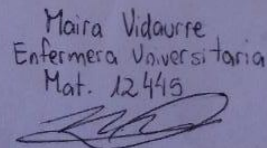 Maira Vidaurre
Enfermera Universitaria
Mat. 12445